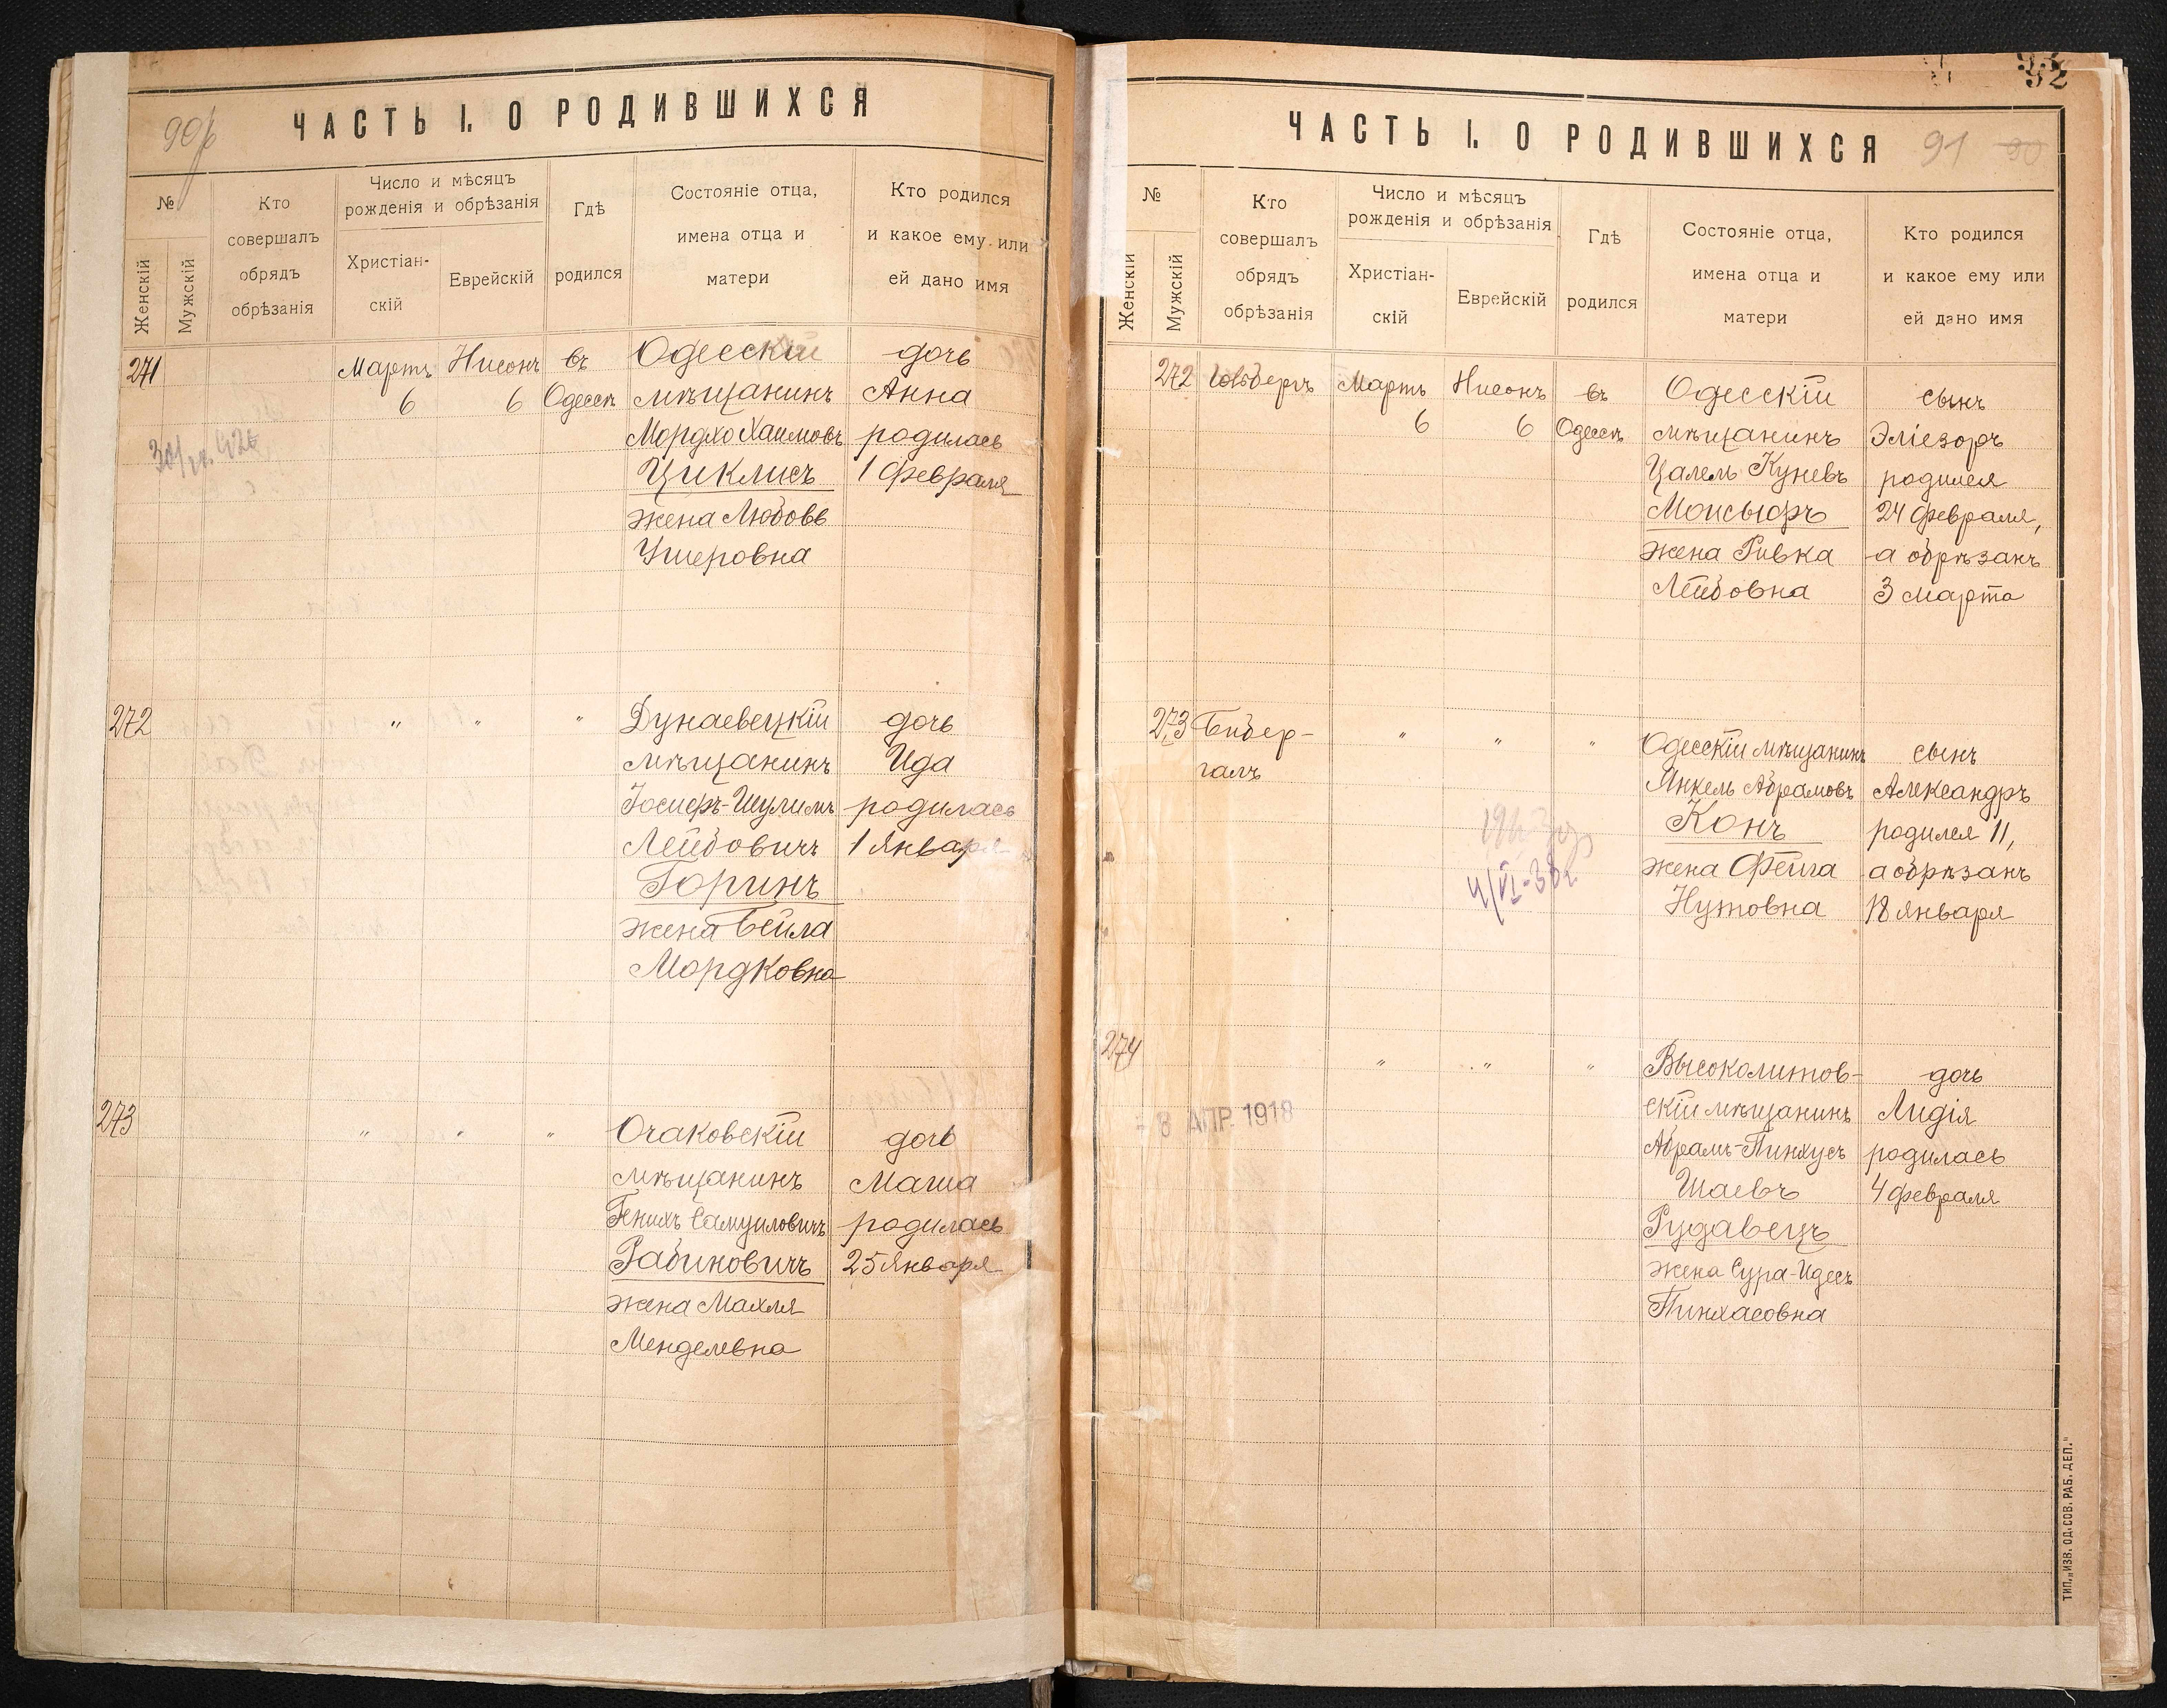 90б
ЧАСТЬ I. О РОДИВШИХСЯ
№
Женскій
Мужскій
Кто
совершалъ
обрядъ
обрѣзанія
Число и мѣсяцъ
рожденія и обрѣзанія
Христіан-
скій
Еврейскій
Гдѣ
родился
Состояніе отца,
имена отца и
матери
Кто родился
и какое ему или
ей дано имя
271
Мартъ
6
Нисонъ
6
въ
Одессѣ
Одесскій
мѣщанинъ
Мордхо Хаимовъ
Циклисъ
жена Любовь
Ушеровна
дочь
Анна
родилась
1 февраля
272
" " "
Дунаевецкій
мѣщанинъ
Іосифъ-Шулимъ
Лейбовичъ
Горинъ
жена Бейла
Мордковна
дочь
Ида
родилась
1 Января
273
" " "
Очаковскій
мѣщанинъ
Генихъ Самуиловичъ
Рабиновичъ
жена Махля
Менделевна
дочь
Маша
родилась
25 Января
92
ЧАСТЬ I. О РОДИВШИХСЯ
91 90
№
Женскій
Мужскій
Кто
совершалъ
обрядъ
обрѣзанія
Число и мѣсяцъ
рожденія и обрѣзанія
Христіан-
скій
Еврейскій
Гдѣ
родился
Состояніе отца,
имена отца и
матери
Кто родился
и какое ему или
ей дано имя
272
Гольдбергъ
Мартъ
6
Нисонъ
6
въ
Одессѣ
Одесскій
мѣщанинъ
Цалель Куневъ
Моисыфъ
жена Ривка
Лейбовна
сынъ
Эліезоръ
родился
24 февраля,
а обрѣзанъ
3 марта
273
Бибер-
галъ
" " "
4/VI-38г.
Одесскій мѣщанинъ
Янкель Абрамовъ
Конъ
жена Фейга
Нутовна
сынъ
Александръ
родился 11,
а обрѣзанъ
18 января
274
" " "
8 АПР. 1918
Высоколитов-
скій мѣщанинъ
Абрамъ-Пинхусъ
Шаевъ
Рудавецъ
жена Сура-Идесъ
Пинхасовна
дочь
Лидія
родилась
4 февраля
ТИП. „ИЗВ. ОД. СОВ. РАБ. ДЕП."